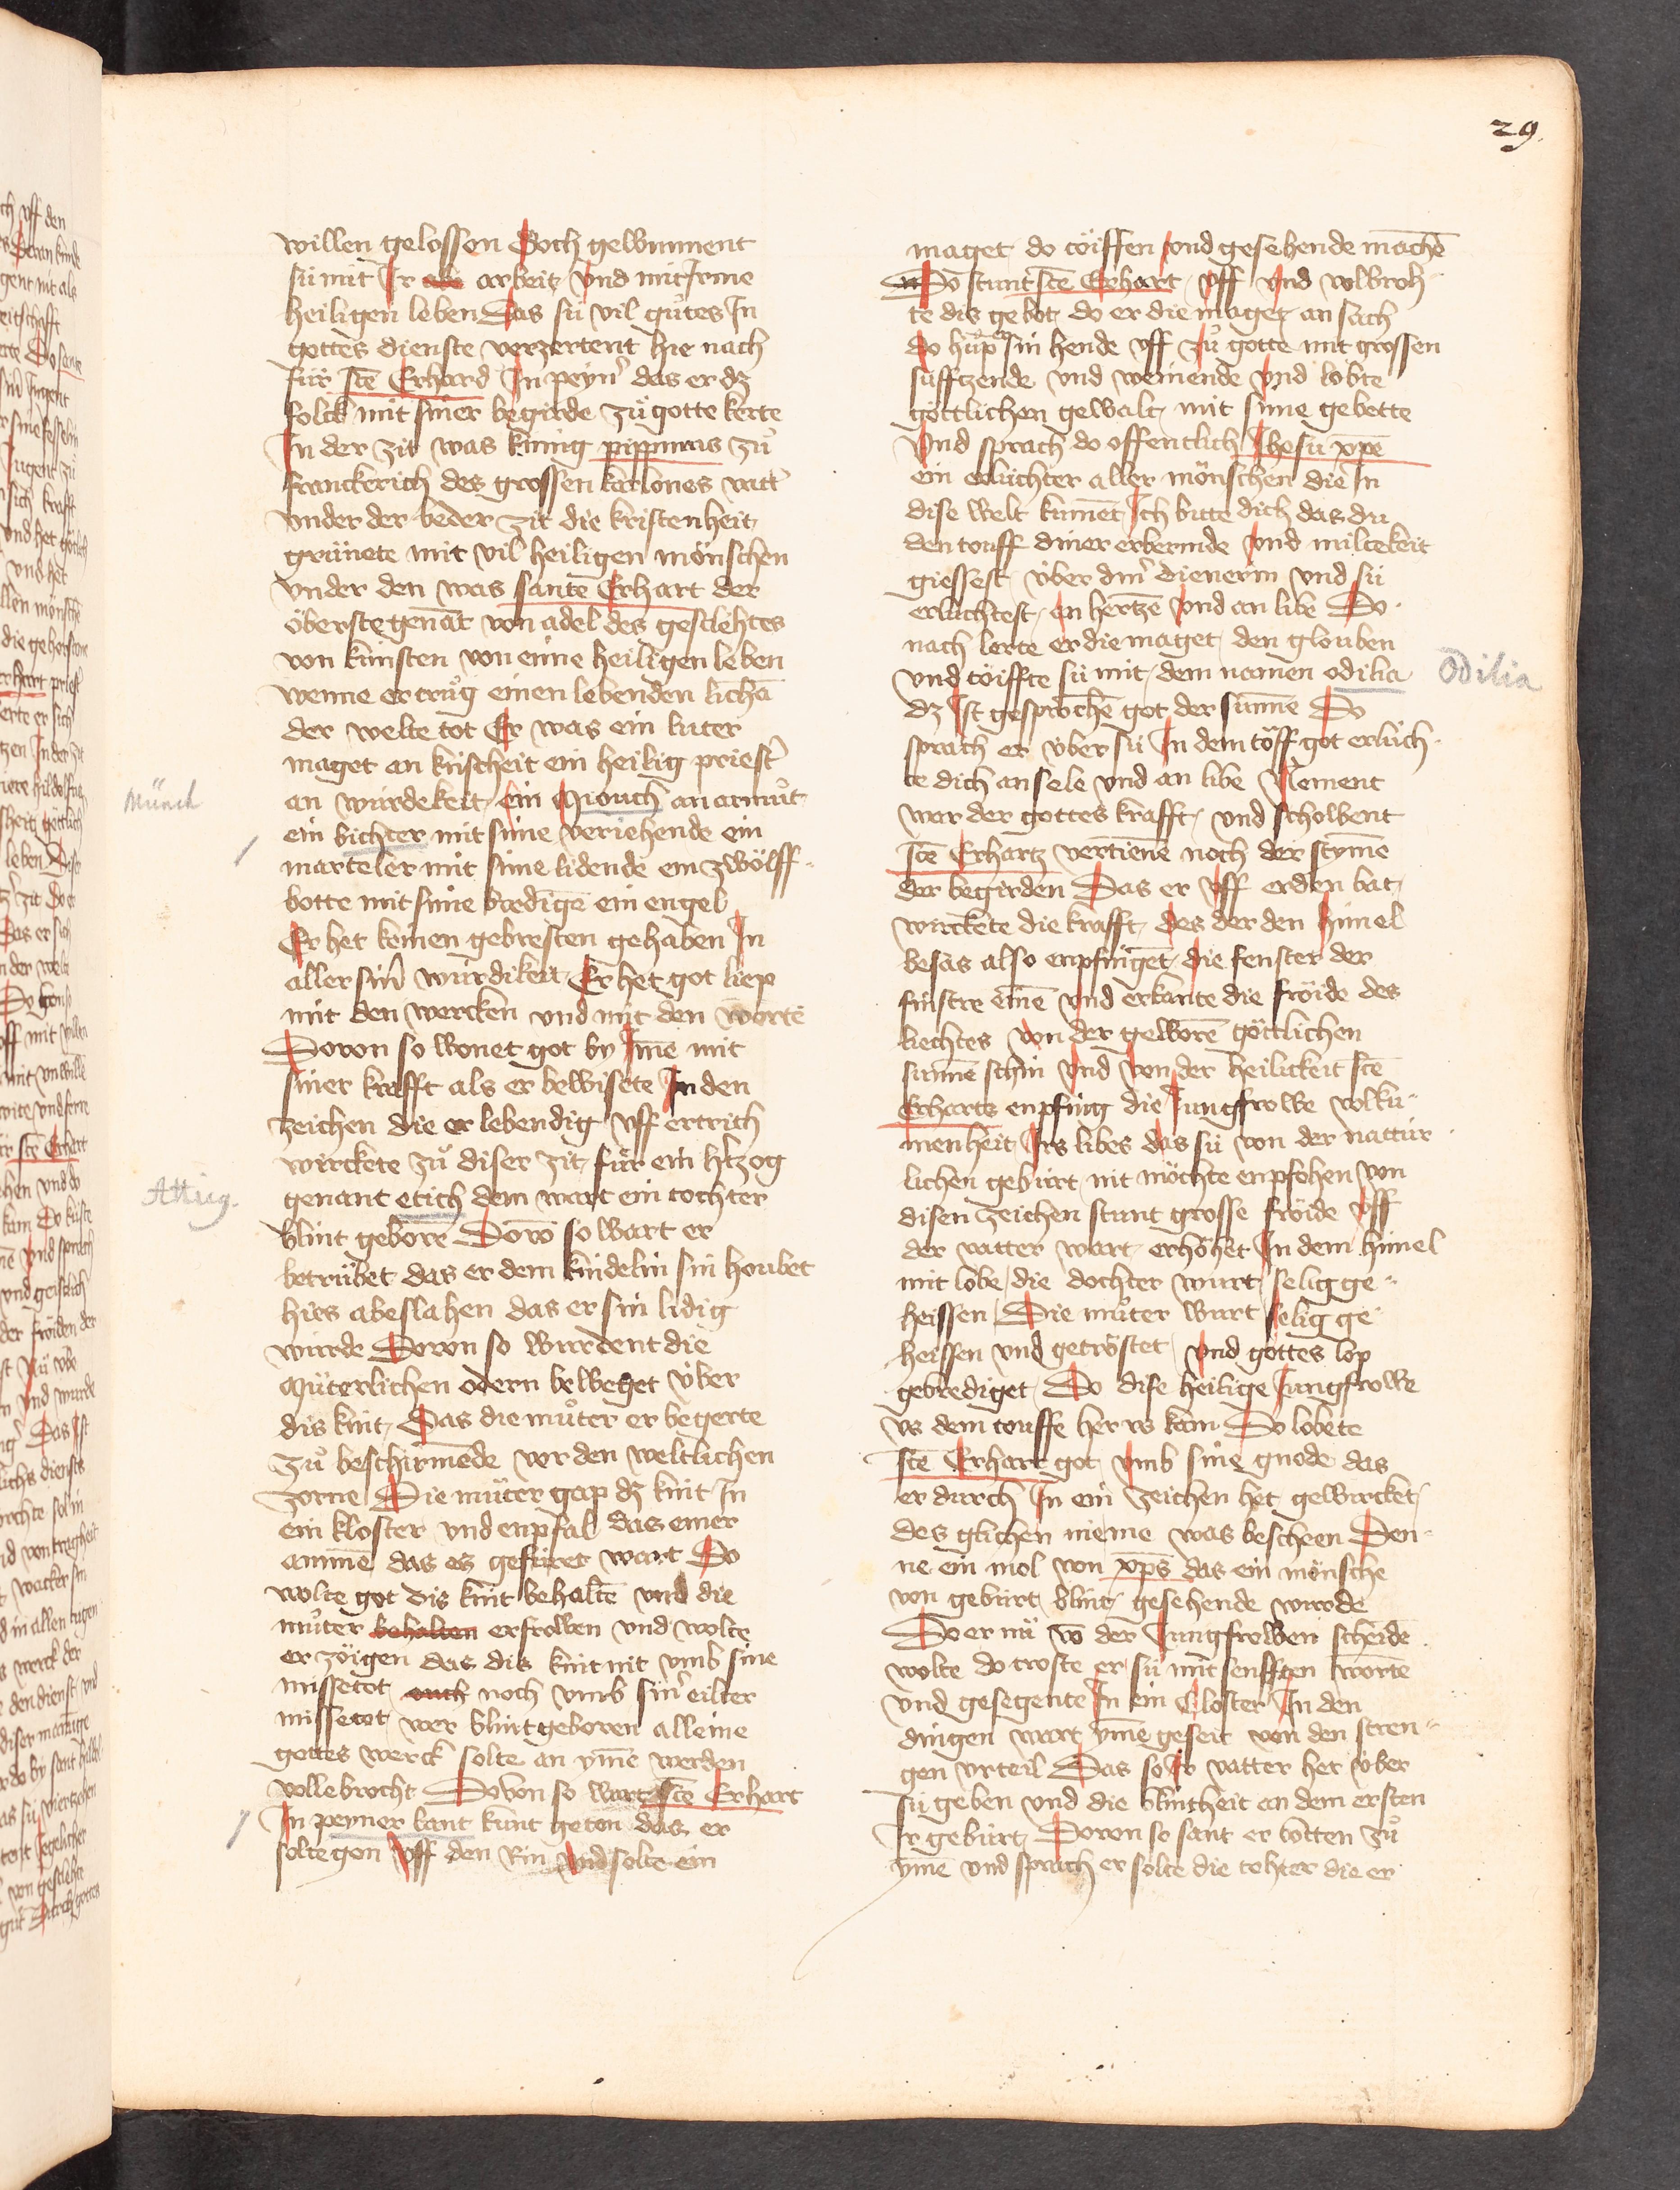 29.
willen gelossen Doch gewunnent
sü mit Ir arbeit vnd mit Irme
heiligen leben Das sü vil gůtes In
gottes dienste verzertent hie nach
für stē Erhard In peyn̓ das er dz
folck mit siner begirde zů gotte kerte
In der zit was kúnig pippinus zů
franckerich des grossen karlones vatt̓
vnder der beder zit die kristenheit
grünete mit vil heiligen mönschen
vnder den was sante Erhart der
öberste genāt von adel des geslehtes
von kunsten von eime heiligen leben
wenne er trůg einen lebenden lichā
der welte tot Er was ein luter
maget an kúscheit ein heilig priest̓
an wúrdekeit ein Mouch an armůt
ein bichter mit sime veriehende ein
marteler mit sime lidende ein zwölff
botte mit sime bredigē ein engel
Er het keinen gebresten gehaben In
aller sin̓ wúrdikeit Er het got liep
mit den wercken vnd mit den wortē
Dovon so wonet got by Ime mit
siner krafft als er bewisete In den
zeichen die er lebendig vff ertrich
wirckete zů diser zit für ein htzog
genant etich dem wart ein tochter
blint geborē Dovō so wart er
betrübet das er dem kindelin sin houbet
hies abeslahen das er sin lidig
wurde Dovon so wurdent die
Müterlichen odern beweget über
dis kint Das die můter er begerte
zů beschirmēde vor den weltlichen
zorne Die můter gap dz kint In
ein kloster vnd enpfal das einer
ammē das es gefüret wart Do
wolte got dis kint behaltē vnd die
můter behalten erfrowen vnd wolte
er zöigen das dis kint nit vmb sine
missetot ouch noch vmb sin̓ eilter
missetot wer blint geboren alleine
gottes werck solte an yme werden
vollebrocht Dovon so wart stē Erhart
In peyner lant kunt geton das er
solte gon vff den Rin vnd solte ein
Münch
Attig.
maget do töiffen vnd gesehende machē
Do stunt stē Erhart vff vnd volbroh
te dis gebot do er die maget an sach
do hup er sin hende vff zů gotte mit grossen
süfftzende vnd weinende vnd lobte
göttlichen gewalt mit sime gebette
Vnd sprach do offentlich Ihesu xpē
ein erlúchter aller mönschen die In
dise welt kumēt Ich bitte dich das du
den touff diner erbermde vnd miltekeit
giessest über din̓ dienerin vnd sü
erlúchtest an hertzē vnd an libe Do
nach lerte er die maget den glouben
vnd töiffte sü mit dem namen odilia
dz Ist gesprochē got der sunne Do
sprach er über sü In dem töff got erlúch
te dich an sele vnd an libe Nement
war der gottes krafft vnd scholvent
stē Erhartz vertienē noch der stymē
der begirden Das er vff erden bat
wirckete die krafft des der den himel
besas also enpfingēt die fenster der
finstre einē vnd erkante die fröide des
liechtes von der gewore göttlichen
sunnē schin vnd von der heilickeit stē
Erhartz enpfing die Iungfrowe volku
menheit Irs libes das sü von der nattur
lichen geburt nit möchte enpfohen von
disen zeichen stunt grosse fröide vff
der vatter wart erhöhet In dem himel
mit lobe die dochter wurt selig ge
heissen Die můter wart selig ge
heissen vnd getröstet vnd gottes lop
gebrediget Do dise heilige Iungfrowe
vs dem touffe her vs kam Do lobete
stē Erhart got vmb sine gnode das
er durch In ein zeichen het gewurcket
des glichen nieme was bescheen Den
ne ein mol von xp̄s das ein mönsche
von geburt blint gesehende wurde
Do er nü vō der Iungfrowen scheidē
wolte do troste er sü mit senfften worte
vnd gesegente In ein Closter In den
dingen wart yme geseit von den stren
gen vrteil Das so Ir vatter het über
sü geben vnd die blintheit an dem ersten
Ir geburt Dovon so sant er botten zů
yme vnd sprach er solte die tohter die er
Odilia